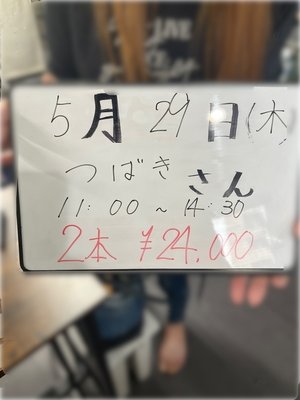 5月29日(木)
つばきさん
11:00~14:30
2本 ¥24,000